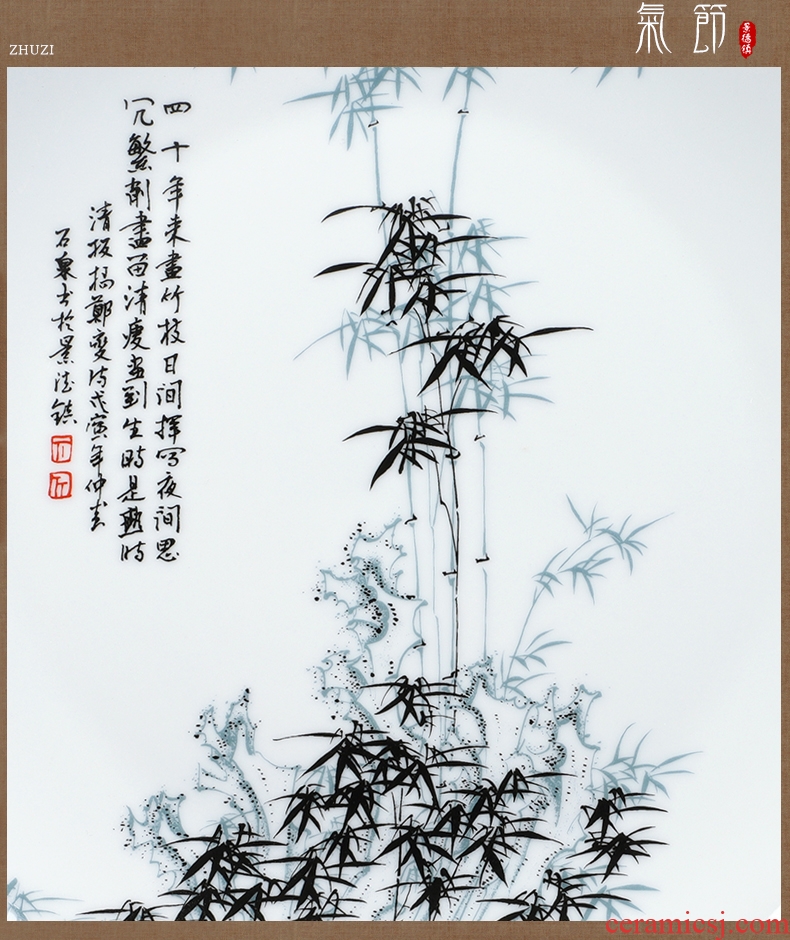 ZHUZI
氣節
景德鎮
四十年来畫竹枝日间揮写夜间思
冗繁削盡留清瘦畫到生時是熟时
清板橋鄭燮诗戊寅年仲春
石泉书於景德鎮
ceramicsj.com